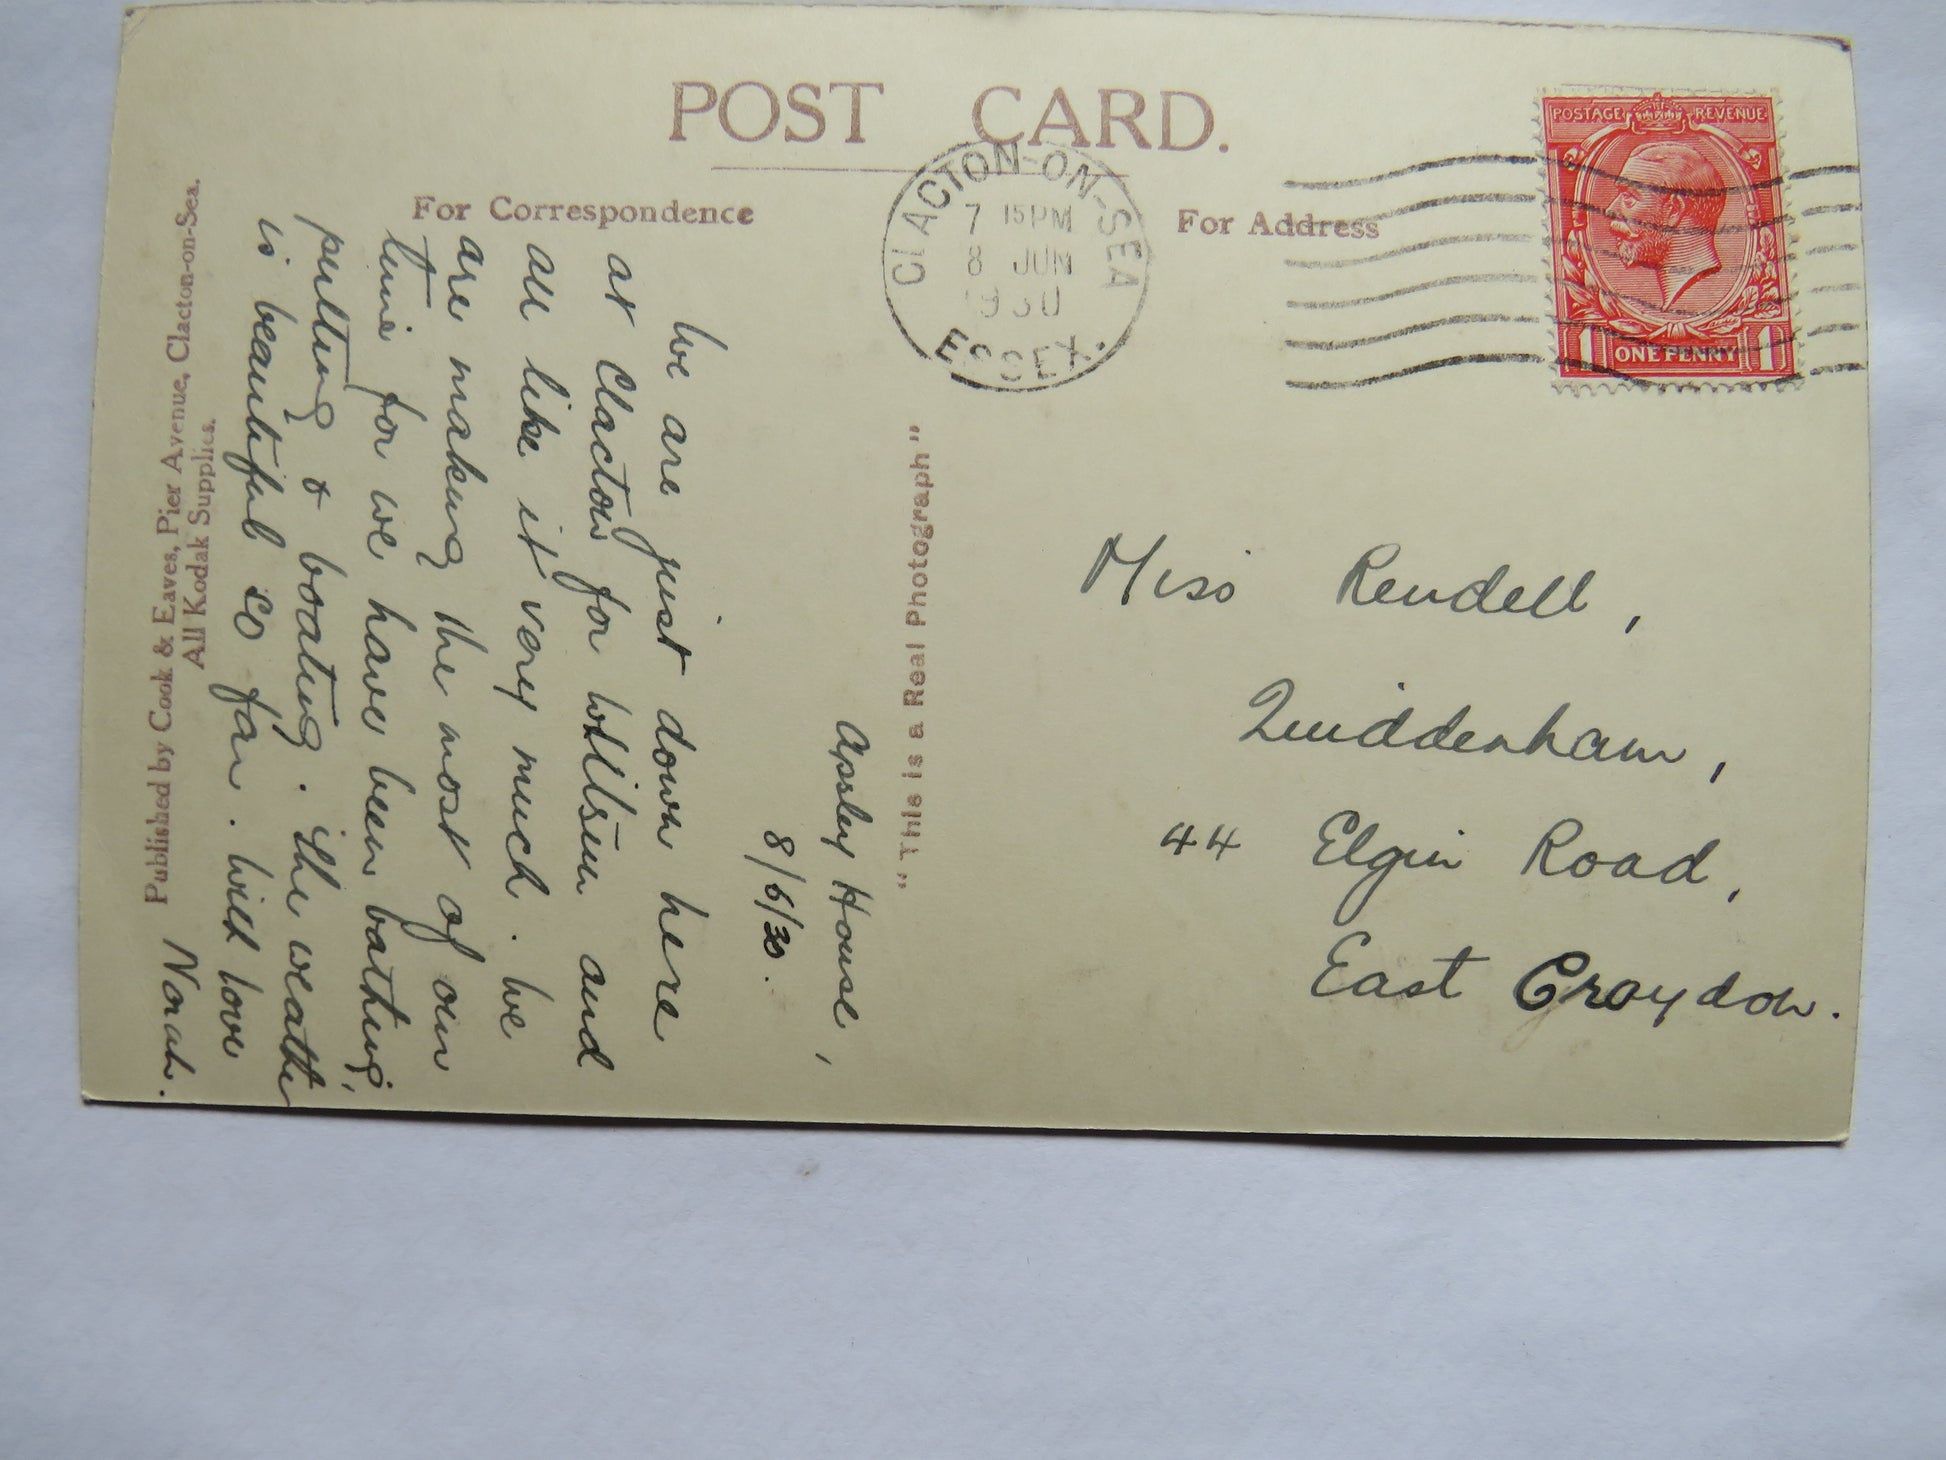 POST CARD.
For Correspondence
For Address
CLACTON-ON-SEA
7 15PM
8 JUN
1930
ESSEX.
POSTAGE REVENUE
1 ONE PENNY 1
Miss Rendell,
Quiddenham,
44 Elgin Road,
East Croydon.
"This is a Real Photograph"
Apsley House,
8/6/30.
We are just down here
at Clacton for Whitsun and
all like it very much. We
are making the most of our
time for we have been bathing,
putting & boating. The weather
is beautiful so far. With love
Norah.
Published by Cook & Eaves, Pier Avenue, Clacton-on-Sea.
All Kodak Supplies.